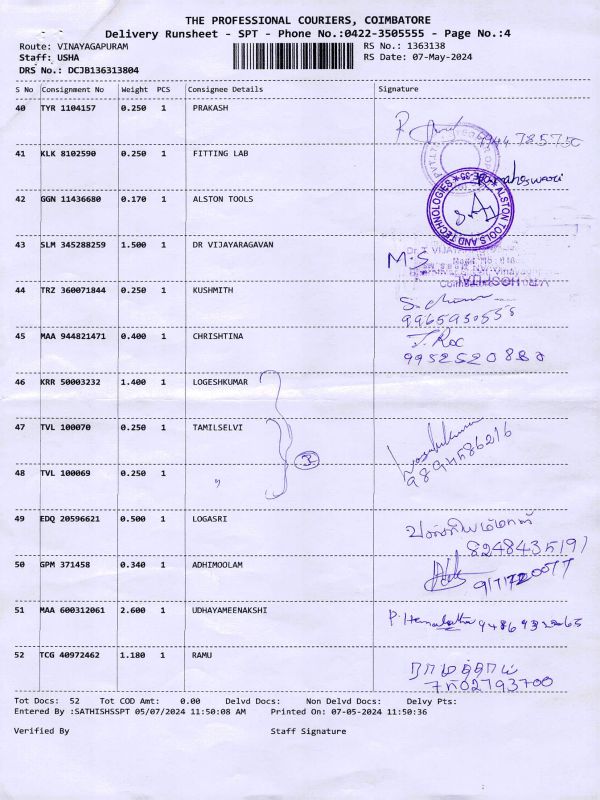 THE PROFESSIONAL COURIERS, COIMBATORE
Delivery Runsheet - SPT - Phone No.:0422-3505555 - Page No.:4
Route: VINAYAGAPURAM RS No.: 1363138
Staff: USHA RS Date: 07-May-2024
DRS No.: DCJB136313804
S No Consignment No Weight PCS Consignee Details Signature
40 TYR 1104157 0.250 1 PRAKASH
41 KLK 8102590 0.250 1 FITTING LAB
42 GGN 11436680 0.170 1 ALSTON TOOLS
ALSTON TOOLS AND TECHNOLOGIES
43 SLM 345288259 1.500 1 DR VIJAYARAGAVAN M.S
44 TRZ 360071844 0.250 1 KUSHMITH
9965930555
45 MAA 944821471 0.400 1 CHRISHTINA
9952520880
46 KRR 50003232 1.400 1 LOGESHKUMAR
47 TVL 100070 0.250 1 TAMILSELVI
3
9894586216
48 TVL 100069 0.250 1 "
49 EDQ 20596621 0.500 1 LOGASRI
8248435191
50 GPM 371458 0.340 1 ADHIMOOLAM
51 MAA 600312061 2.600 1 UDHAYAMEENAKSHI P. Hemalatha
52 TCG 40972462 1.180 1 RAMU
Tot Docs: 52 Tot COD Amt: 0.00 Delvd Docs: Non Delvd Docs: Delvy Pts:
Entered By :SATHISHSSPT 05/07/2024 11:50:08 AM Printed On: 07-05-2024 11:50:36
Verified By Staff Signature